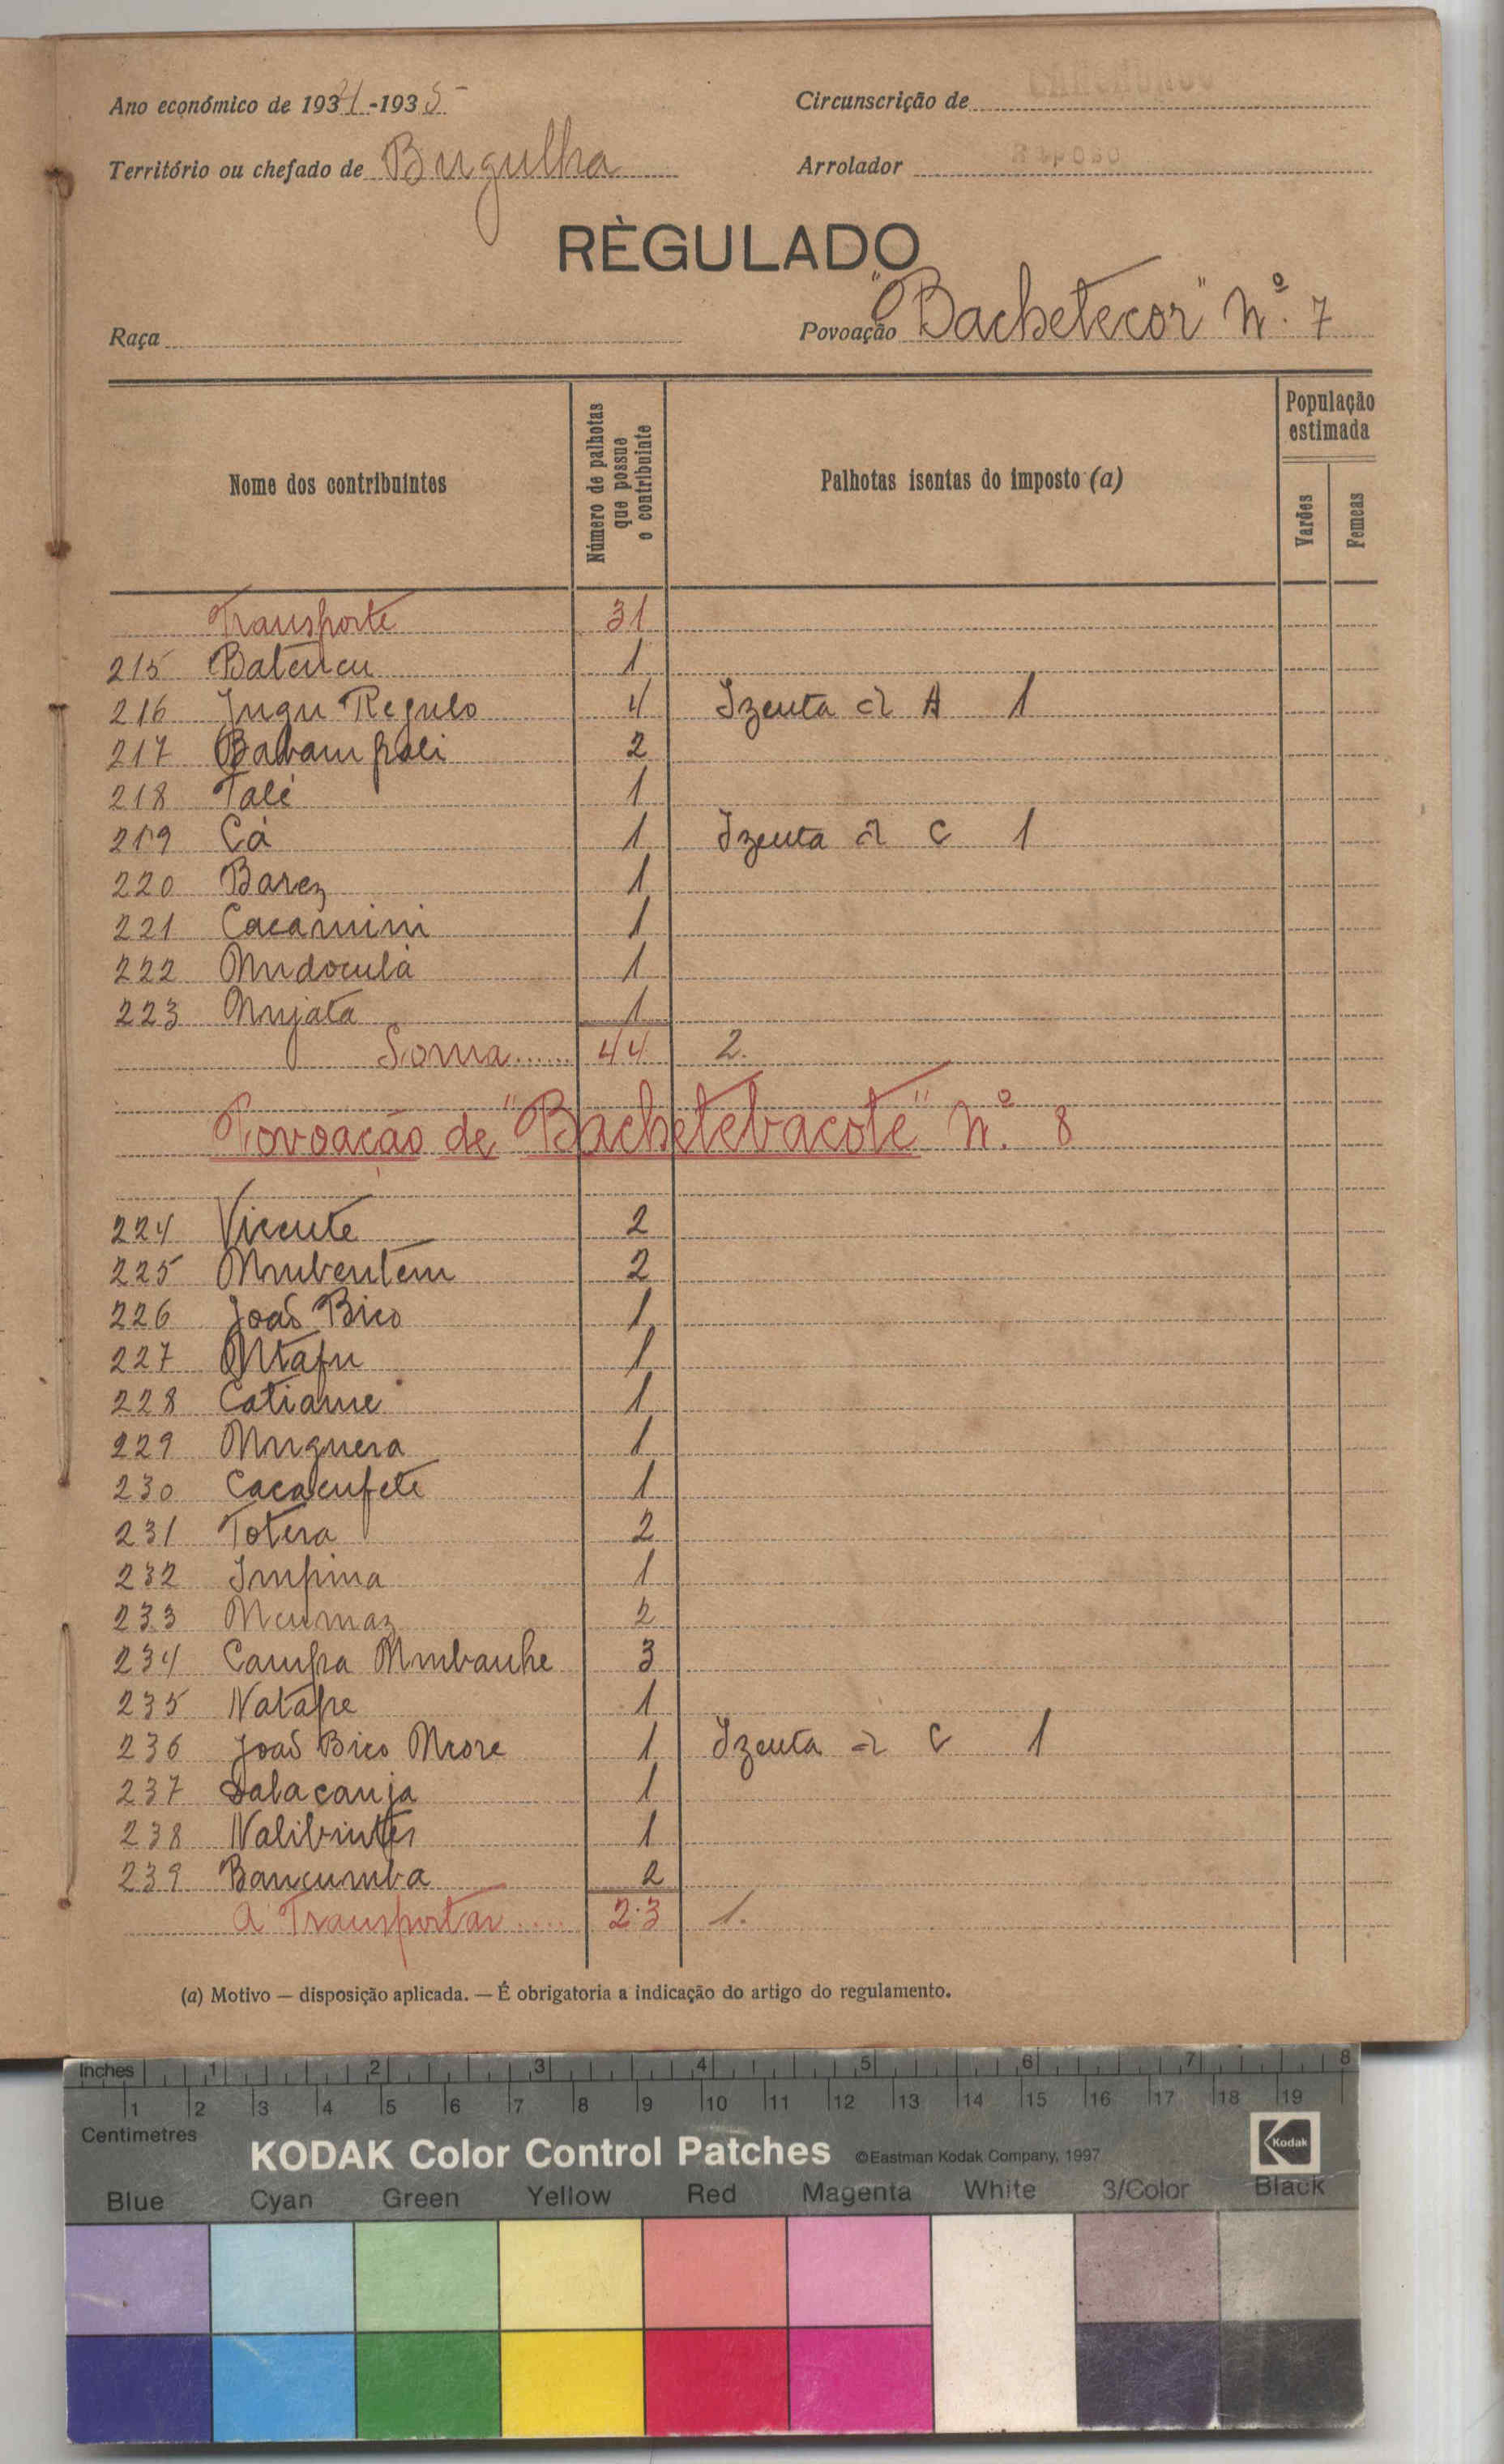 Ano económico de 1934-1935
Circunscrição de
Território ou chefado de Bugulha
Arrolador Raposo
RÈGULADO
Raça
Povoação "Bachetecor" Nº. 7
Nome dos contribuintes
Número de palhotas que possue o contribuinte
Palhotas isentas do imposto (a)
População estimada
Varões
Femeas
Transporte 31
215 Batencu 1
216 Jugu Regulo 4 Izenta al A 1
217 Babampoli 2
218 Talé 1
219 Cá 1 Izenta al C 1
220 Barez 1
221 Cacamini 1
222 Mudoculá 1
223 Mujata 1
Soma...... 44 2.
Povoação de "Bachetebacote" Nº. 8
224 Vicente 2
225 Mubentem 2
226 João Bico 1
227 Ntafu 1
228 Catiame 1
229 Muguera 1
230 Cacacufete 1
231 Totera 2
232 Impina 1
233 Ncumaz 2
234 Campa Mubanhe 3
235 Natape 1
236 João Bico Nrore 1 Izenta al C 1
237 Dalacanja 1
238 Nalibinter 1
239 Bancumba 2
A Transportar.... 23 1.
(a) Motivo — disposição aplicada. — É obrigatoria a indicação do artigo do regulamento.
Inches 1 2 3 4 5 6 7 8
1 2 3 4 5 6 7 8 9 10 11 12 13 14 15 16 17 18 19
Centimetres
KODAK Color Control Patches ©Eastman Kodak Company, 1997 Kodak
Blue Cyan Green Yellow Red Magenta White 3/Color Black